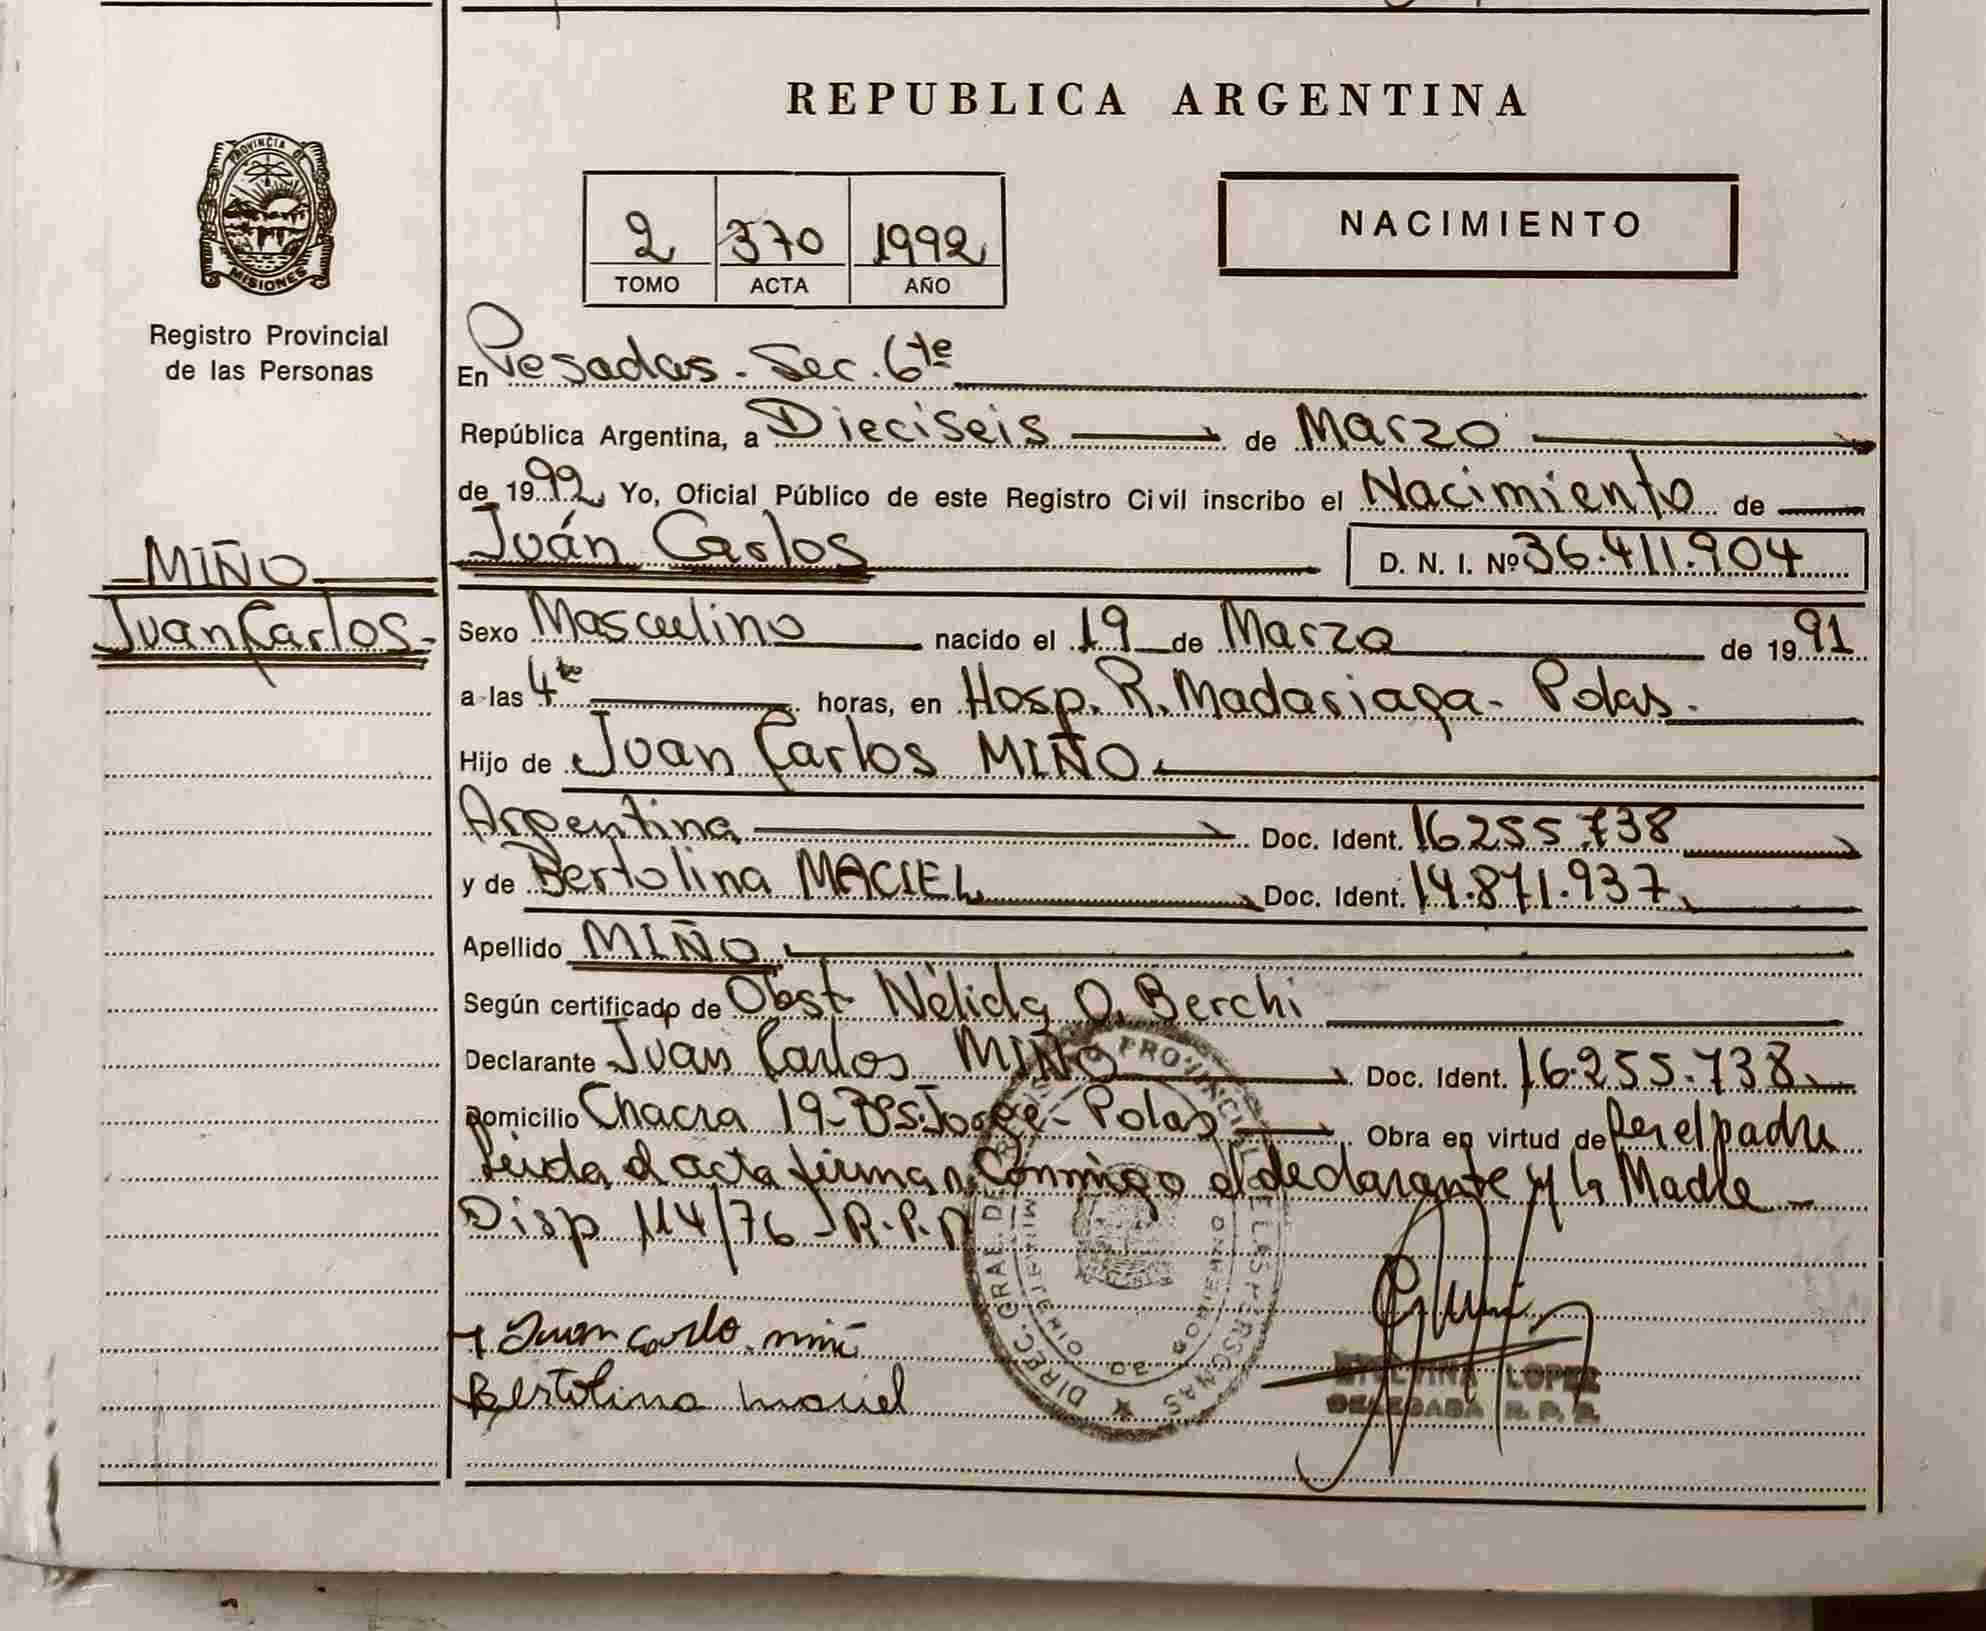 REPUBLICA ARGENTINA
PROVINCIA DE
MISIONES
Registro Provincial
de las Personas
2 370 1992
TOMO ACTA AÑO
NACIMIENTO
MIÑO
Juan Carlos-
En Posadas. Sec. 6ta
República Argentina, a Dieciseis de Marzo
de 1992 Yo, Oficial Público de este Registro Civil inscribo el Nacimiento de
Juán Carlos D. N. I. Nº 36.411.904
Sexo Masculino nacido el 19 de Marzo de 1991
a las 4te horas, en Hosp. R. Madariaga- Pdas.
Hijo de Juan Carlos MIÑO.
Argentina Doc. Ident. 16255.738
y de Bertolina MACIEL Doc. Ident. 14.871.937
Apellido MIÑO
Según certificado de Obst Nélida O. Berchi
Declarante Juan Carlos MIÑO Doc. Ident. 16.255.738
Domicilio Chacra 19- Bº S. Jorge- Pdas Obra en virtud de Ser el padre
Leida el acta firman Conmigo el declarante y la Madre -
Disp 114/76 - R.P.P
Juan Carlo miñ
Bertolina maciel
DIREC. GRAL. DEL REGISTRO PROVINCIAL DE LAS PERSONAS
MINISTERIO DE GOBIERNO
LOPEZ
DELEGADA R. P. P.